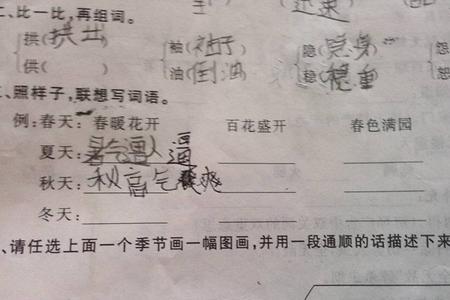 二、比一比,再组词。
拱(拱出 袖(袖子 隐(隐身 怨
供( ) 油(倒油 稳(稳重
、照样子,联想写词语。
例:春天:春暖花开 百花盛开 春色满园
夏天:暑气 人 通
秋天:秋高气爽
冬天:
、请任选上面一个季节画一幅图画,并用一段通顺的话描述下来